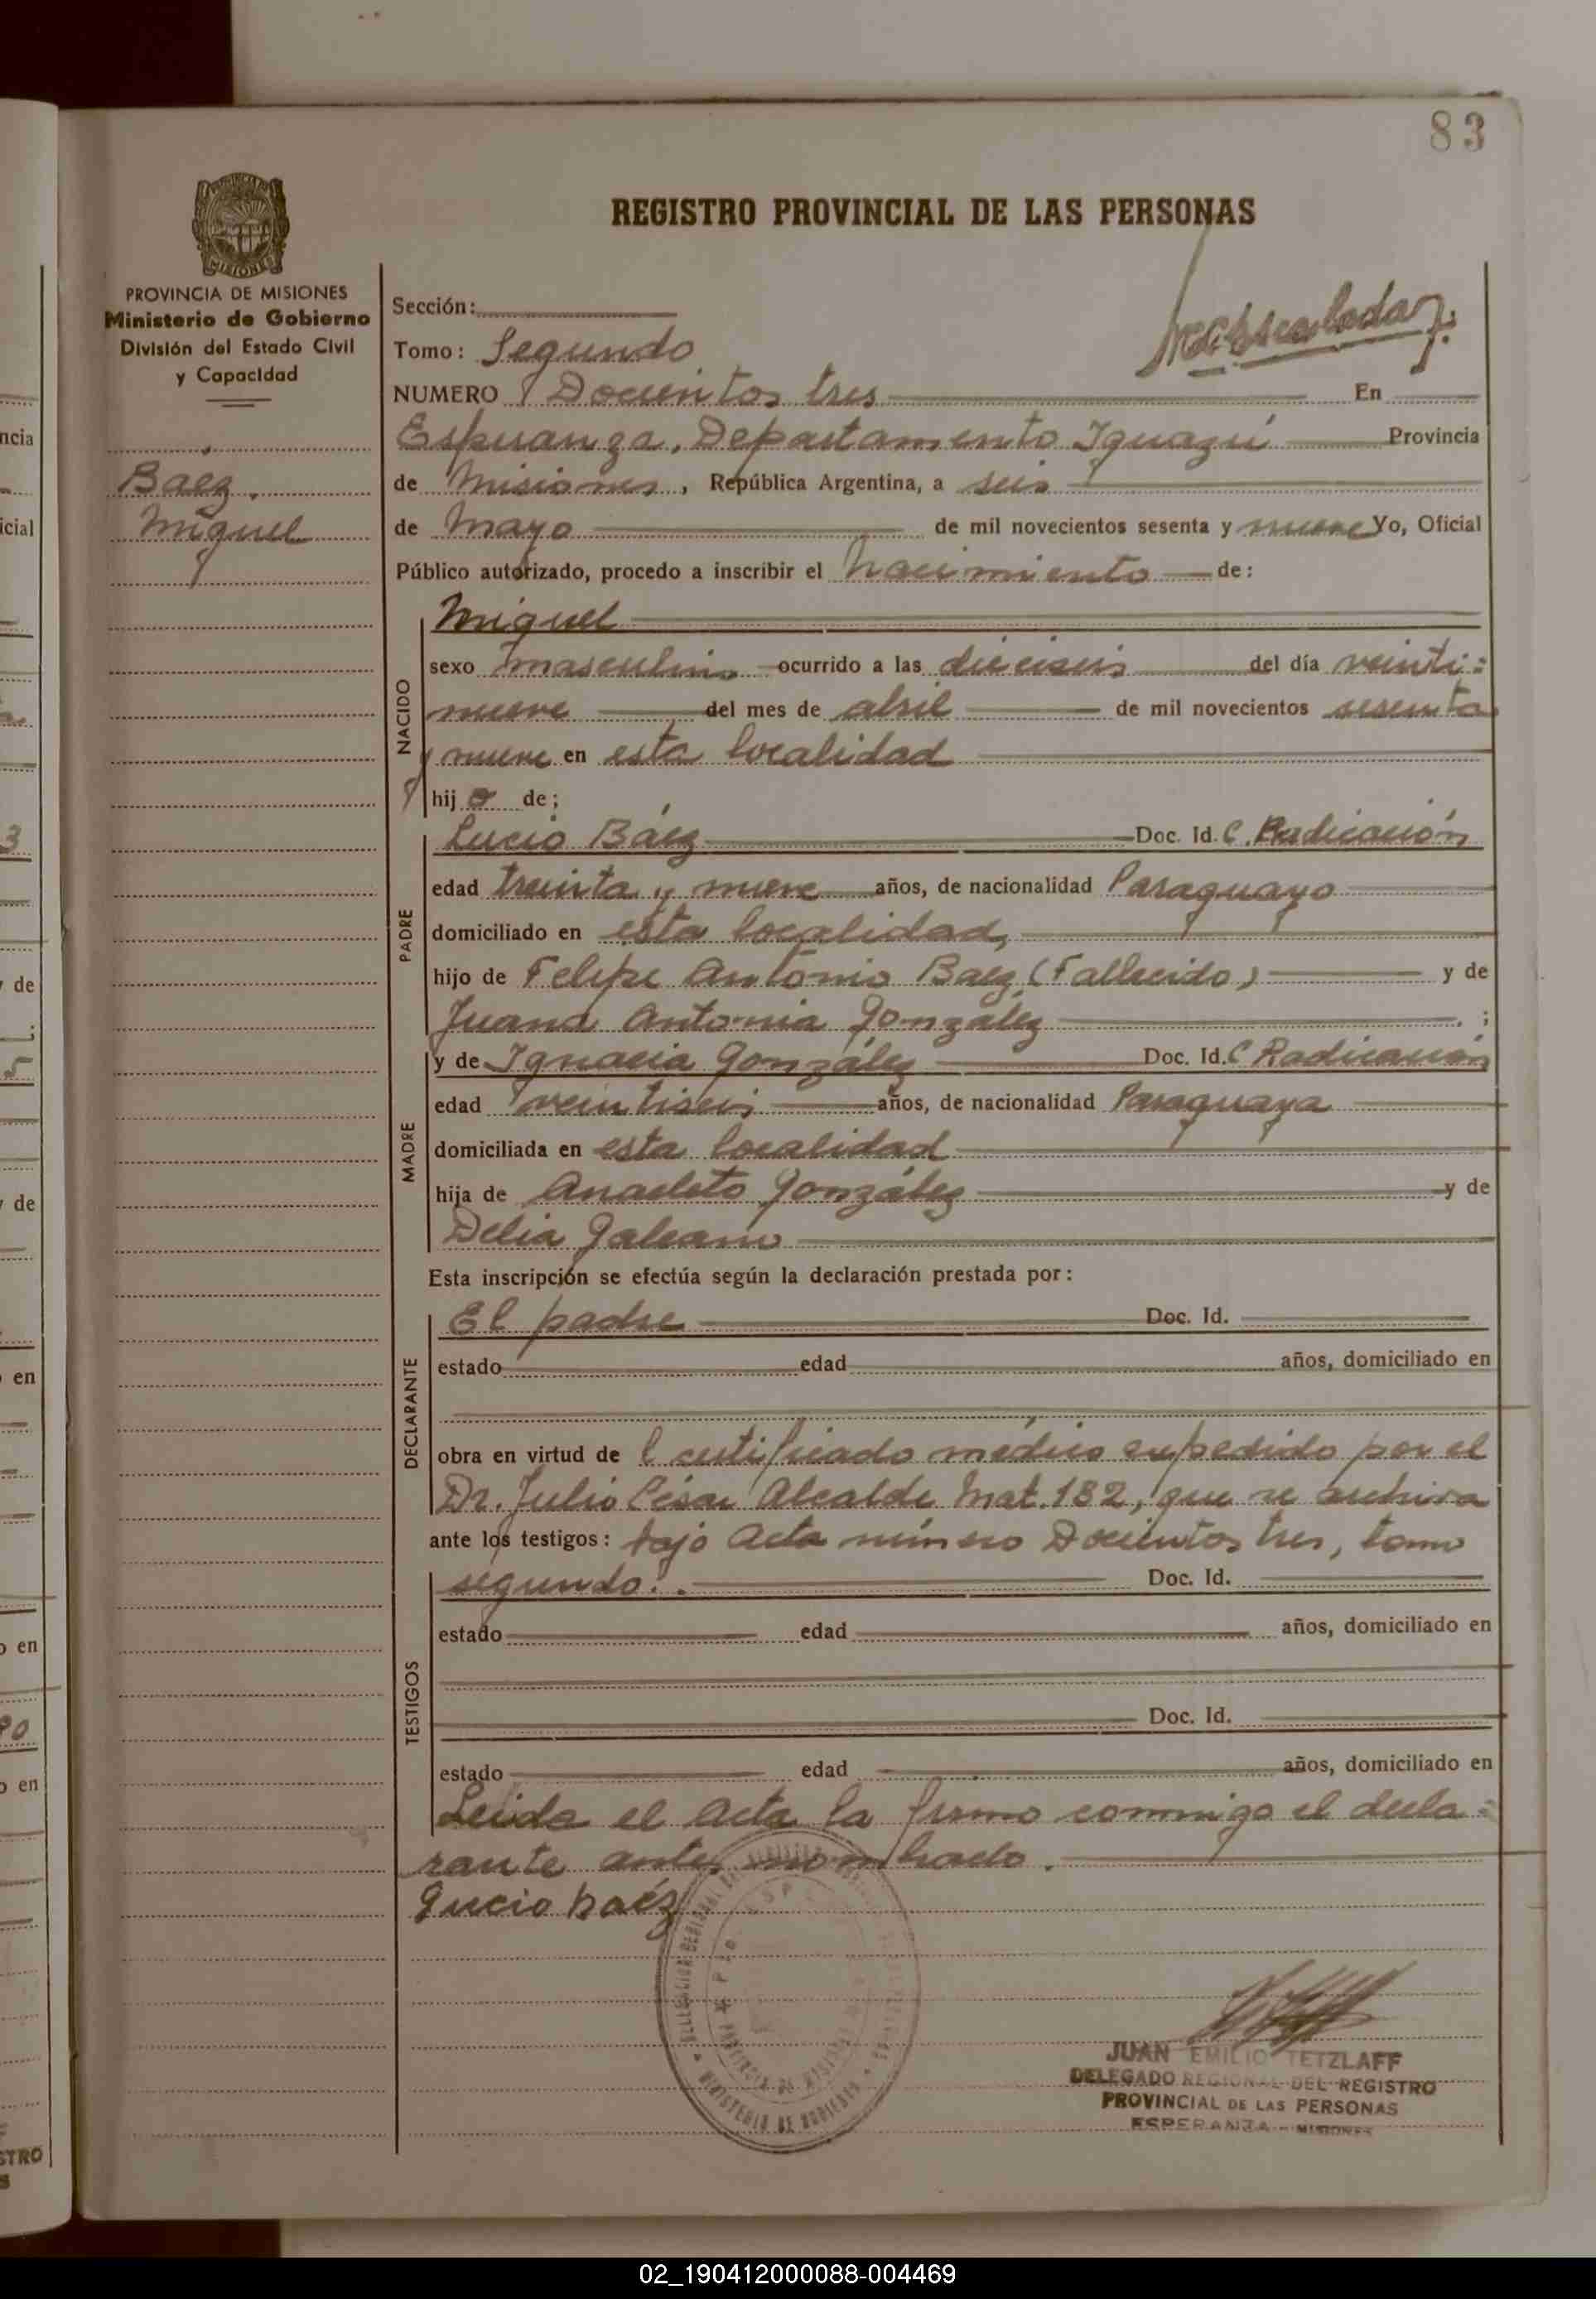 83
REGISTRO PROVINCIAL DE LAS PERSONAS
PROVINCIA DE MISIONES
Ministerio de Gobierno
División del Estado Civil
y Capacidad
Baez.
Miguel
Sección:
Tomo: Segundo
NUMERO Docientos tres En
Esperanza, Departamento Iguazú Provincia
de Misiones, República Argentina, a seis
de Mayo de mil novecientos sesenta y nueve Yo, Oficial
Público autorizado, procedo a inscribir el nacimiento de:
NACIDO
Miguel
sexo masculino ocurrido a las dieciseis del día veinti=
nueve del mes de abril de mil novecientos sesenta
y nueve en esta localidad
hijo de;
PADRE
Lucio Báez Doc. Id. C. Radicación
edad treinta y nueve años, de nacionalidad Paraguayo
domiciliado en esta localidad,
hijo de Felipe Antonio Baez (Fallecido) y de
Juana Antonia González ;
MADRE
y de Ignacia González Doc. Id. C Radicación
edad veintiseis años, de nacionalidad Paraguaya
domiciliada en esta localidad
hija de Anacleto González y de
Delia Galeano
Esta inscripción se efectúa según la declaración prestada por:
DECLARANTE
El padre Doc. Id.
estado edad años, domiciliado en
obra en virtud de l certificado médico expedido por el
Dr. Julio César Alcalde Mat. 182, que se archiva
ante los testigos: bajo Acta número Docientos tres, tomo
TESTIGOS
segundo.. Doc. Id.
estado edad años, domiciliado en
Doc. Id.
estado edad años, domiciliado en
Leida el Acta la firmo conmigo el decla=
rante antes nombrado.
Lucio Baéz
MINISTERIO DE GOBIERNO
PROVINCIA DE MISIONES
JUAN EMILIO TETZLAFF
DELEGADO REGIONAL DEL REGISTRO
PROVINCIAL DE LAS PERSONAS
ESPERANZA - MISIONES
ncia
icial
3
y de
5
y de
en
o en
90
o en
STRO
02_190412000088-004469